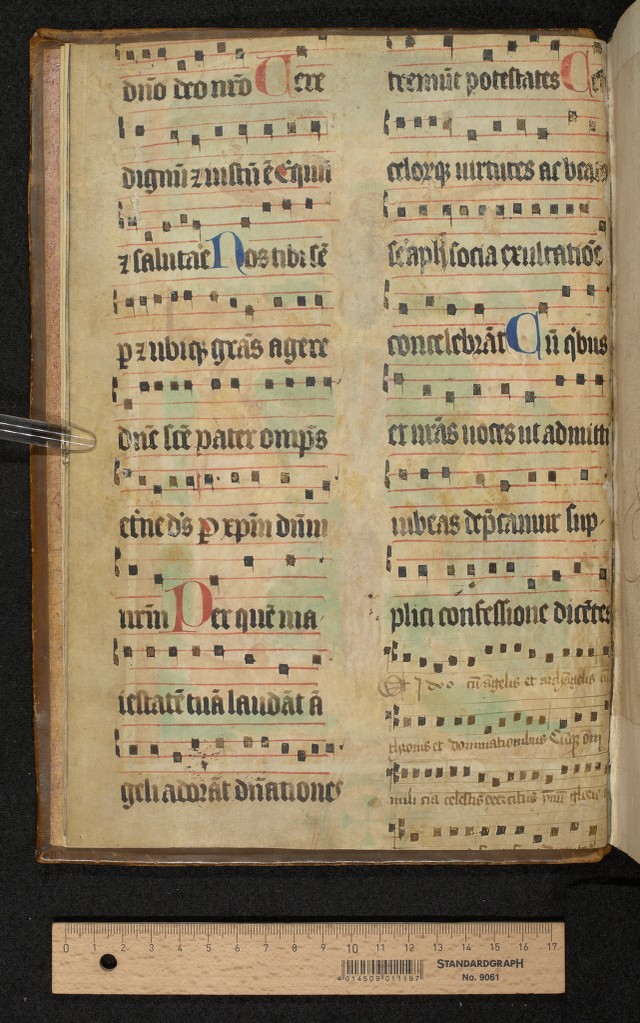 dn̄o deo nr̄o Uere
dignū ⁊ iustū ē Equū
⁊ salutar̄e Nos tibi sē
ꝑ ⁊ ubiqꝫ grās agere
dn̄e sc̄e pater omp̄s
et̄ne ds̄ ꝑ xp̄m dn̄m
nr̄m Per quē ma
iestatē tuā laudāt ā
geli adorāt dn̄ationes
tremūt potestates
celorqꝫ uirtutes ac beata
seraph̄ socia exultatiōe
concelebrāt Cū qͥbus
et nr̄as uoces ut admitti
iubeas dep̄camur sup
plici confessione dicētes
Et Ideo cū āgelis et archāgelis cū
thronis et dominationibus Cūqꝫ om̄i
mili cia celestis exercitus ymnū glorie
0 1 2 3 4 5 6 7 8 9 10 11 12 13 14 15 16 17
4 014509 011197
STANDARDGRAPH
No. 9061